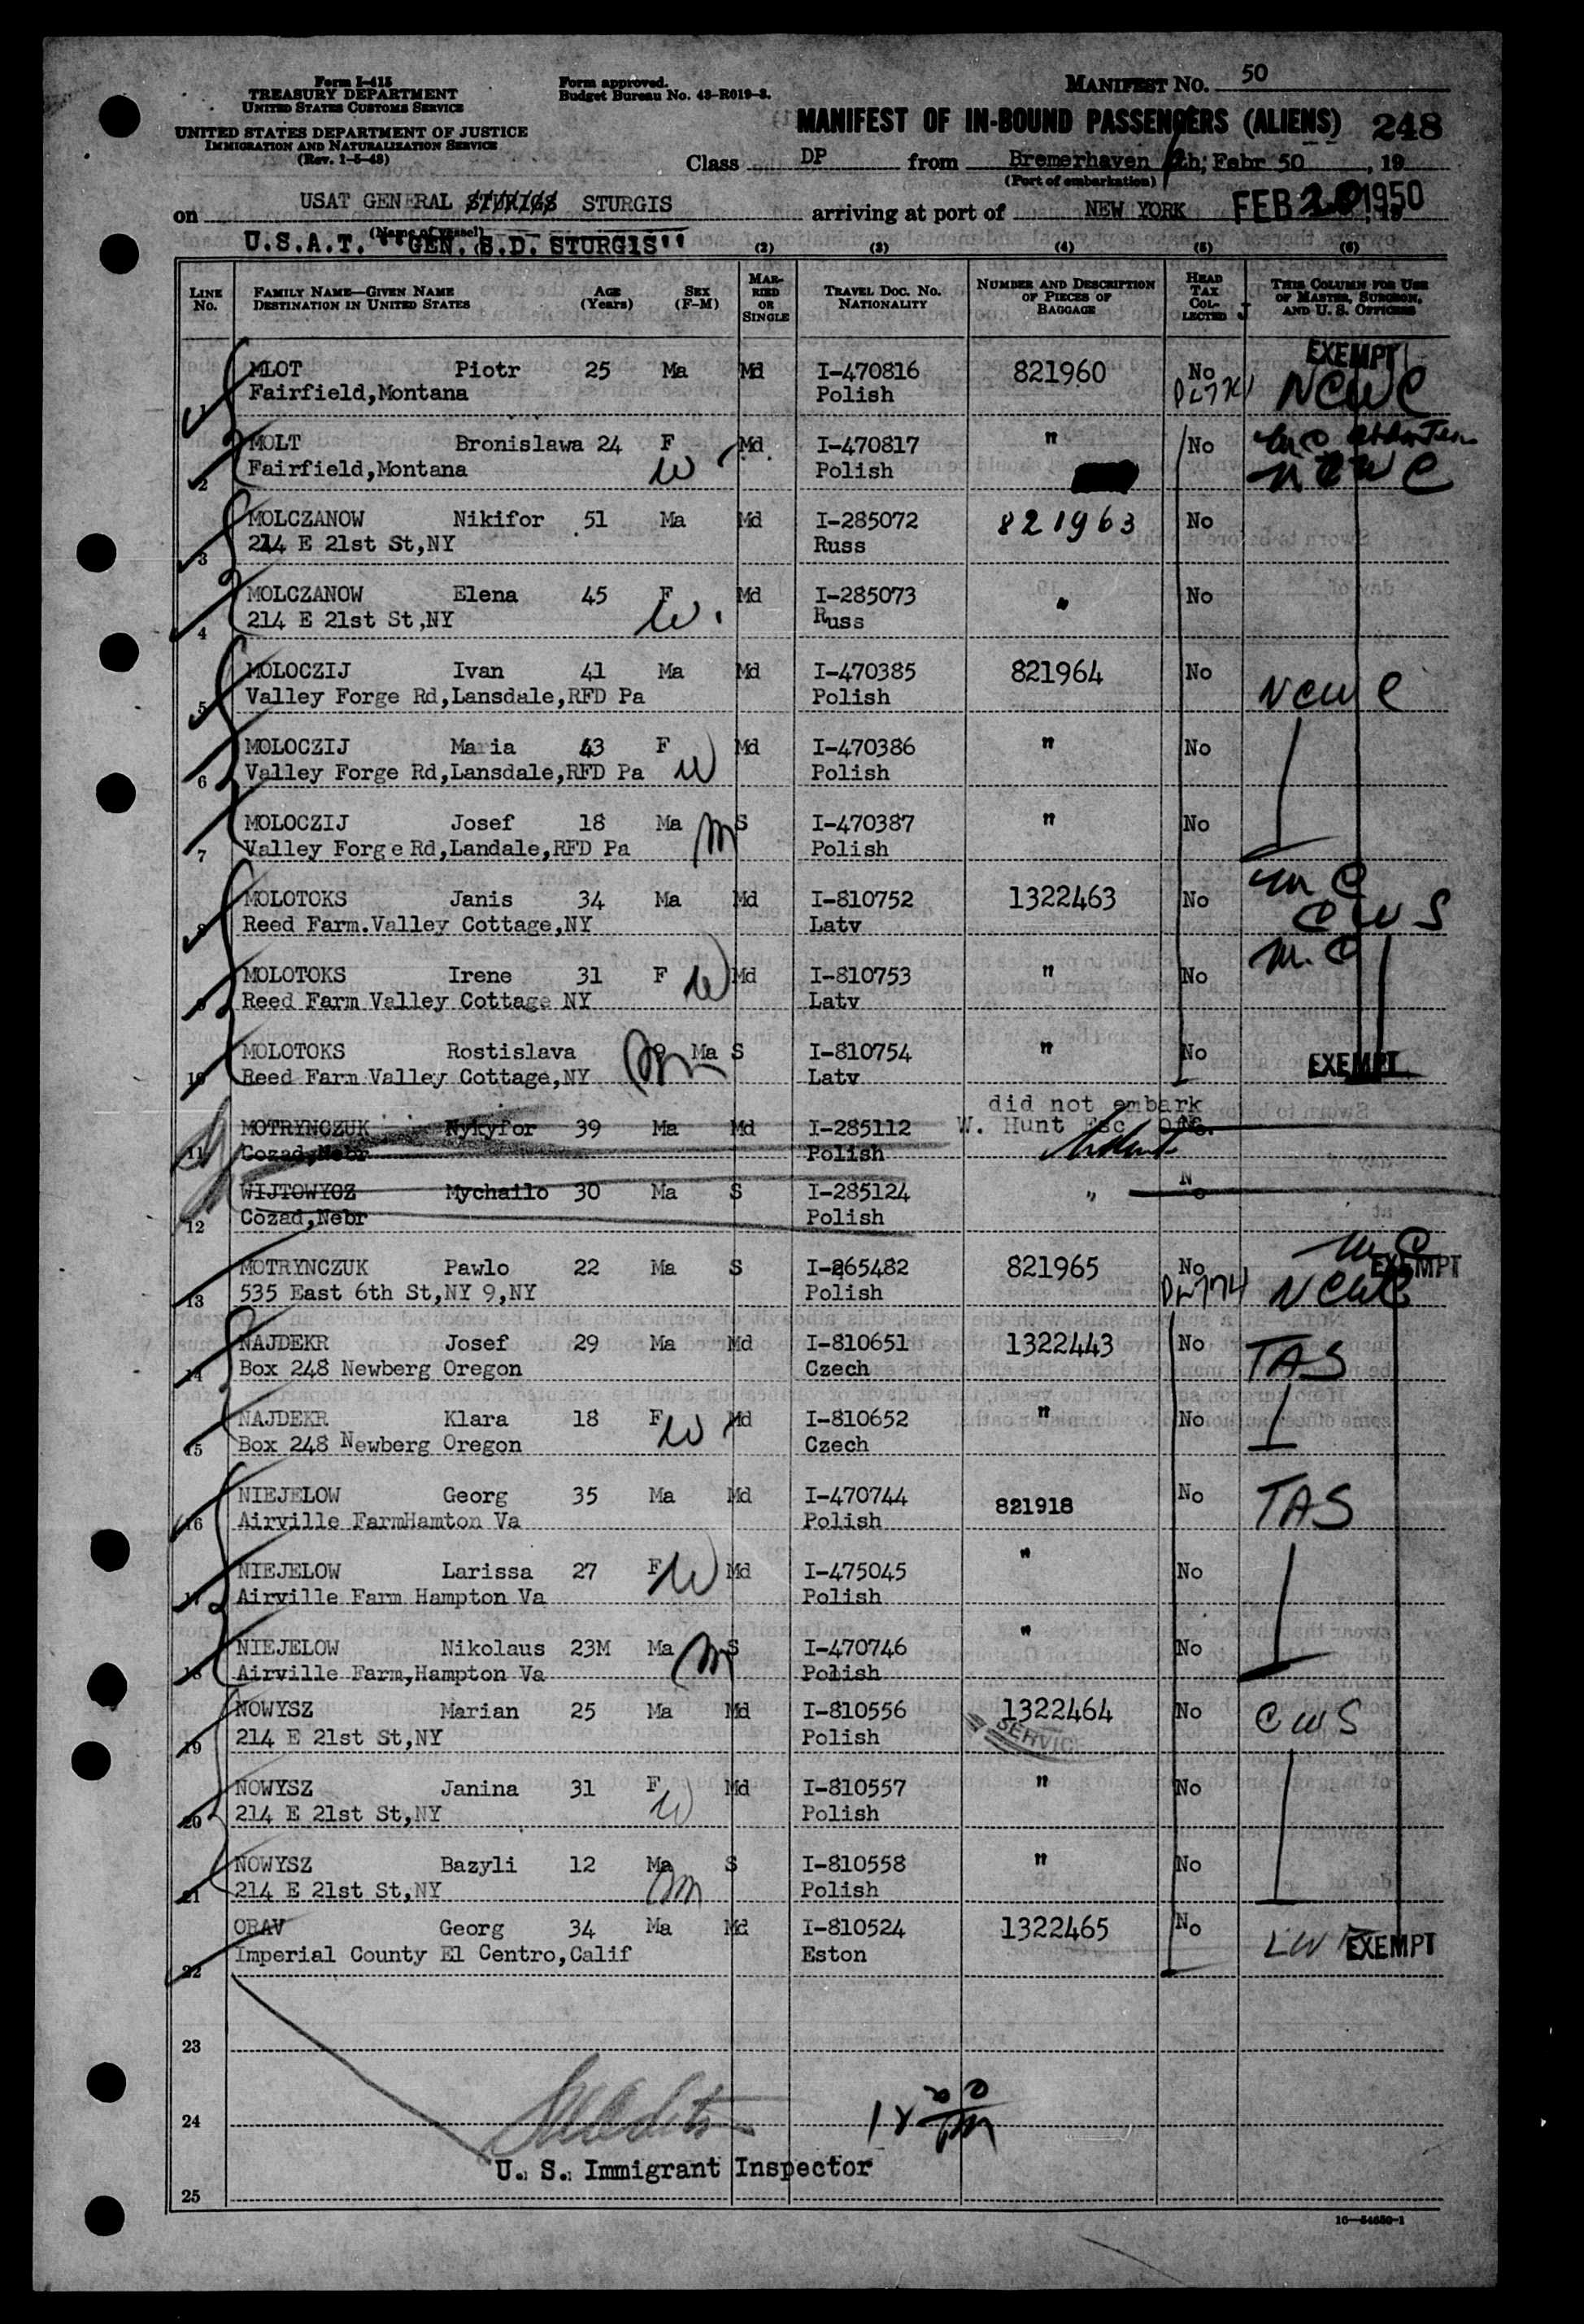 Form I-415
TREASURY DEPARTMENT
UNITED STATES CUSTOMS SERVICE
Form approved.
Budget Bureau No. 43-R019-3.
MANIFEST NO. 50
UNITED STATES DEPARTMENT OF JUSTICE
IMMIGRATION AND NATURALIZATION SERVICE
(Rev. 1-5-48)
MANIFEST OF IN-BOUND PASSENGERS (ALIENS) 248
Class DP from Bremerhaven th; Febr 50, 19
(Port of embarkation)
on USAT GENERAL STURGIS arriving at port of NEW YORK FEB 20 1950
(Name of vessel)
U.S.A.T. "GEN. S.D. STURGIS"
(2) (3) (4) (5) (6)
LINE No. FAMILY NAME—GIVEN NAME DESTINATION IN UNITED STATES AGE (Years) SEX (F-M) MARRIED OR SINGLE TRAVEL DOC. NO. NATIONALITY NUMBER AND DESCRIPTION OF PIECES OF BAGGAGE HEAD TAX COLLECTED THIS COLUMN FOR USE OF MASTER, SURGEON, AND U. S. OFFICERS
EXEMPT
1 MLOT Piotr 25 Ma Md I-470816 821960 No NCWC
Fairfield,Montana Polish
2 MOLT Bronislawa 24 F Md I-470817 " No
Fairfield,Montana W Polish NCWC
3 MOLCZANOW Nikifor 51 Ma Md I-285072 821963 No
214 E 21st St,NY Russ
4 MOLCZANOW Elena 45 F Md I-285073 " No
214 E 21st St,NY W Russ
5 MOLOCZIJ Ivan 41 Ma Md I-470385 821964 No NCWC
Valley Forge Rd,Lansdale,RFD Pa Polish
6 MOLOCZIJ Maria 43 F Md I-470386 " No
Valley Forge Rd,Lansdale,RFD Pa W Polish
7 MOLOCZIJ Josef 18 Ma S I-470387 " No
Valley Forge Rd,Landale,RFD Pa m Polish
8 MOLOTOKS Janis 34 Ma Md I-810752 1322463 No m C
Reed Farm.Valley Cottage,NY Latv CWS
9 MOLOTOKS Irene 31 F W Md I-810753 " No m.C
Reed Farm Valley Cottage NY Latv
10 MOLOTOKS Rostislava Ma S I-810754 " No EXEMPT
Reed Farm Valley Cottage,NY Latv
did not embark
11 MOTRYNCZUK Nykyfor 39 Ma Md I-285112 W. Hunt Esc Ofc.
Cozad,Nebr Polish
12 WIJTOWYCZ Mychailo 30 Ma S I-285124 " No
Cozad,Nebr Polish
m C
13 MOTRYNCZUK Pawlo 22 Ma S I-265482 821965 No EXEMPT
535 East 6th St,NY 9,NY Polish NCWC
14 NAJDEKR Josef 29 Ma Md I-810651 1322443 No TAS
Box 248 Newberg Oregon Czech
15 NAJDEKR Klara 18 F W Md I-810652 " No
Box 248 Newberg Oregon Czech
16 NIEJELOW Georg 35 Ma Md I-470744 821918 No TAS
Airville FarmHamton Va Polish
17 NIEJELOW Larissa 27 F W Md I-475045 " No
Airville Farm Hampton Va Polish
18 NIEJELOW Nikolaus 23M Ma m S I-470746 " No
Airville Farm,Hampton Va Polish
19 NOWYSZ Marian 25 Ma Md I-810556 1322464 No CWS
214 E 21st St,NY Polish SERVICE
20 NOWYSZ Janina 31 F Md I-810557 " No
214 E 21st St,NY W Polish
21 NOWYSZ Bazyli 12 Ma S I-810558 " No
214 E 21st St,NY m Polish
22 ORAV Georg 34 Ma Md I-810524 1322465 No
Imperial County El Centro,Calif Eston EXEMPT
23
24
U. S. Immigrant Inspector
25
16—54650-1